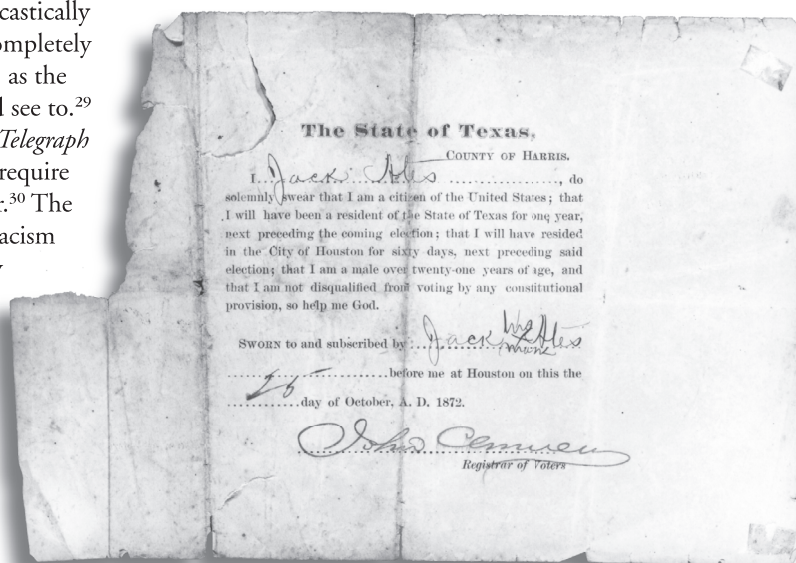 castically
ompletely
as the
l see to.²⁹
Telegraph
require
r.³⁰ The
acism
The State of Texas,
COUNTY OF HARRIS.
I Jack Ates, do
solemnly swear that I am a citizen of the United States; that
I will have been a resident of the State of Texas for one year,
next preceding the coming election; that I will have resided
in the City of Houston for sixty days, next preceding said
election; that I am a male over twenty-one years of age, and
that I am not disqualified from voting by any constitutional
provision, so help me God.
SWORN to and subscribed by Jack his X mark Ates
before me at Houston on this the
25
day of October, A. D. 1872.
John
Registrar of Voters